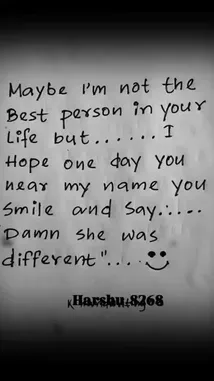 Maybe I'm not the
Best person in your
Life but...... I
Hope one day you
hear my name you
Smile and Say.....
Damn she was
different"....
Harshu 8268